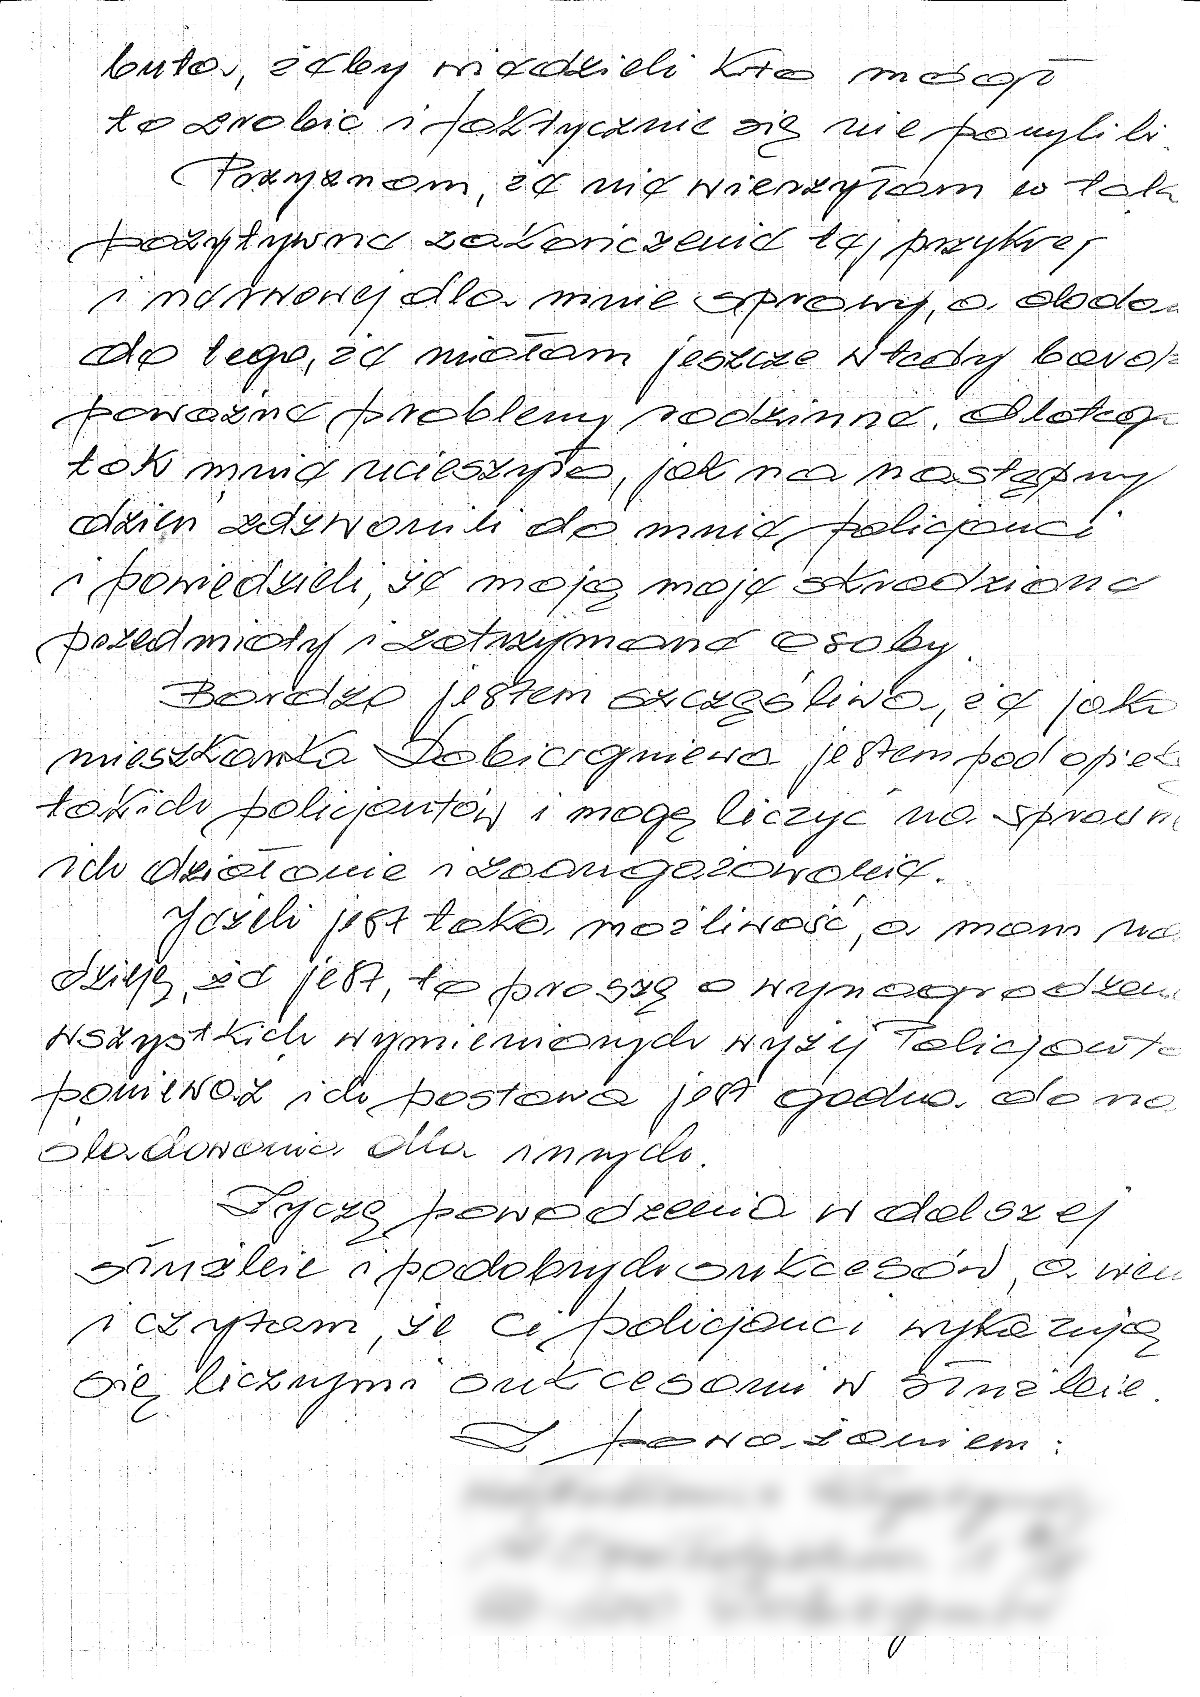 buta, żeby wiedzieli kto mógł
to zrobić i faktycznie się nie pomylili.
Przyznam, że nie wierzyłam w tak
pozytywne zakończenie tej przykrej
i nerwowej dla mnie sprawy, a doda
do tego, że miałam jeszcze wtedy bard
poważne problemy rodzinne. Dlateg
tak mnie ucieszyło, jak na następny
dzień zdzwonili do mnie policjanci
i powiedzieli, że mają moje skradzione
przedmioty i zatrzymane osoby.
Bardzo jestem szczęśliwa, że jako
mieszkanka Dobiegniewa jestem pod opiek
takich policjantów i mogę liczyć na sprawn
ich działanie i zaangażowanie.
Jeżeli jest taka możliwość, a mam na
dzieję, że jest, to proszę o wynagrodzeni
wszystkich wymienionych wyżej Policjantó
ponieważ ich postawa jest godna do na
śladowania dla innych.
Życzę powodzenia w dalszej
służbie i podobnych sukcesów, a wiem
i czytam, że Ci policjanci wykazują
się licznymi sukcesami w służbie.
Z poważaniem: